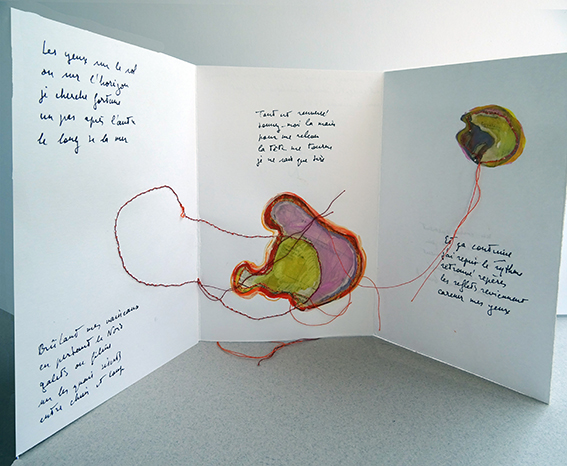 Les yeux sur le sol
ou sur l'horizon
je cherche fortune
un pas après l'autre
le long de la mer
Brûlant mes vaisseaux
en perdant le Nord
galets ou filins
sur les quais
entre chien et loup
Tout est renversé
donnez-moi la main
pour me relever
la tête me tourne
je ne sais que dire
Et ça continue
j'ai repris le rythme
retrouvé repères
les reflets reviennent
caresser mes yeux